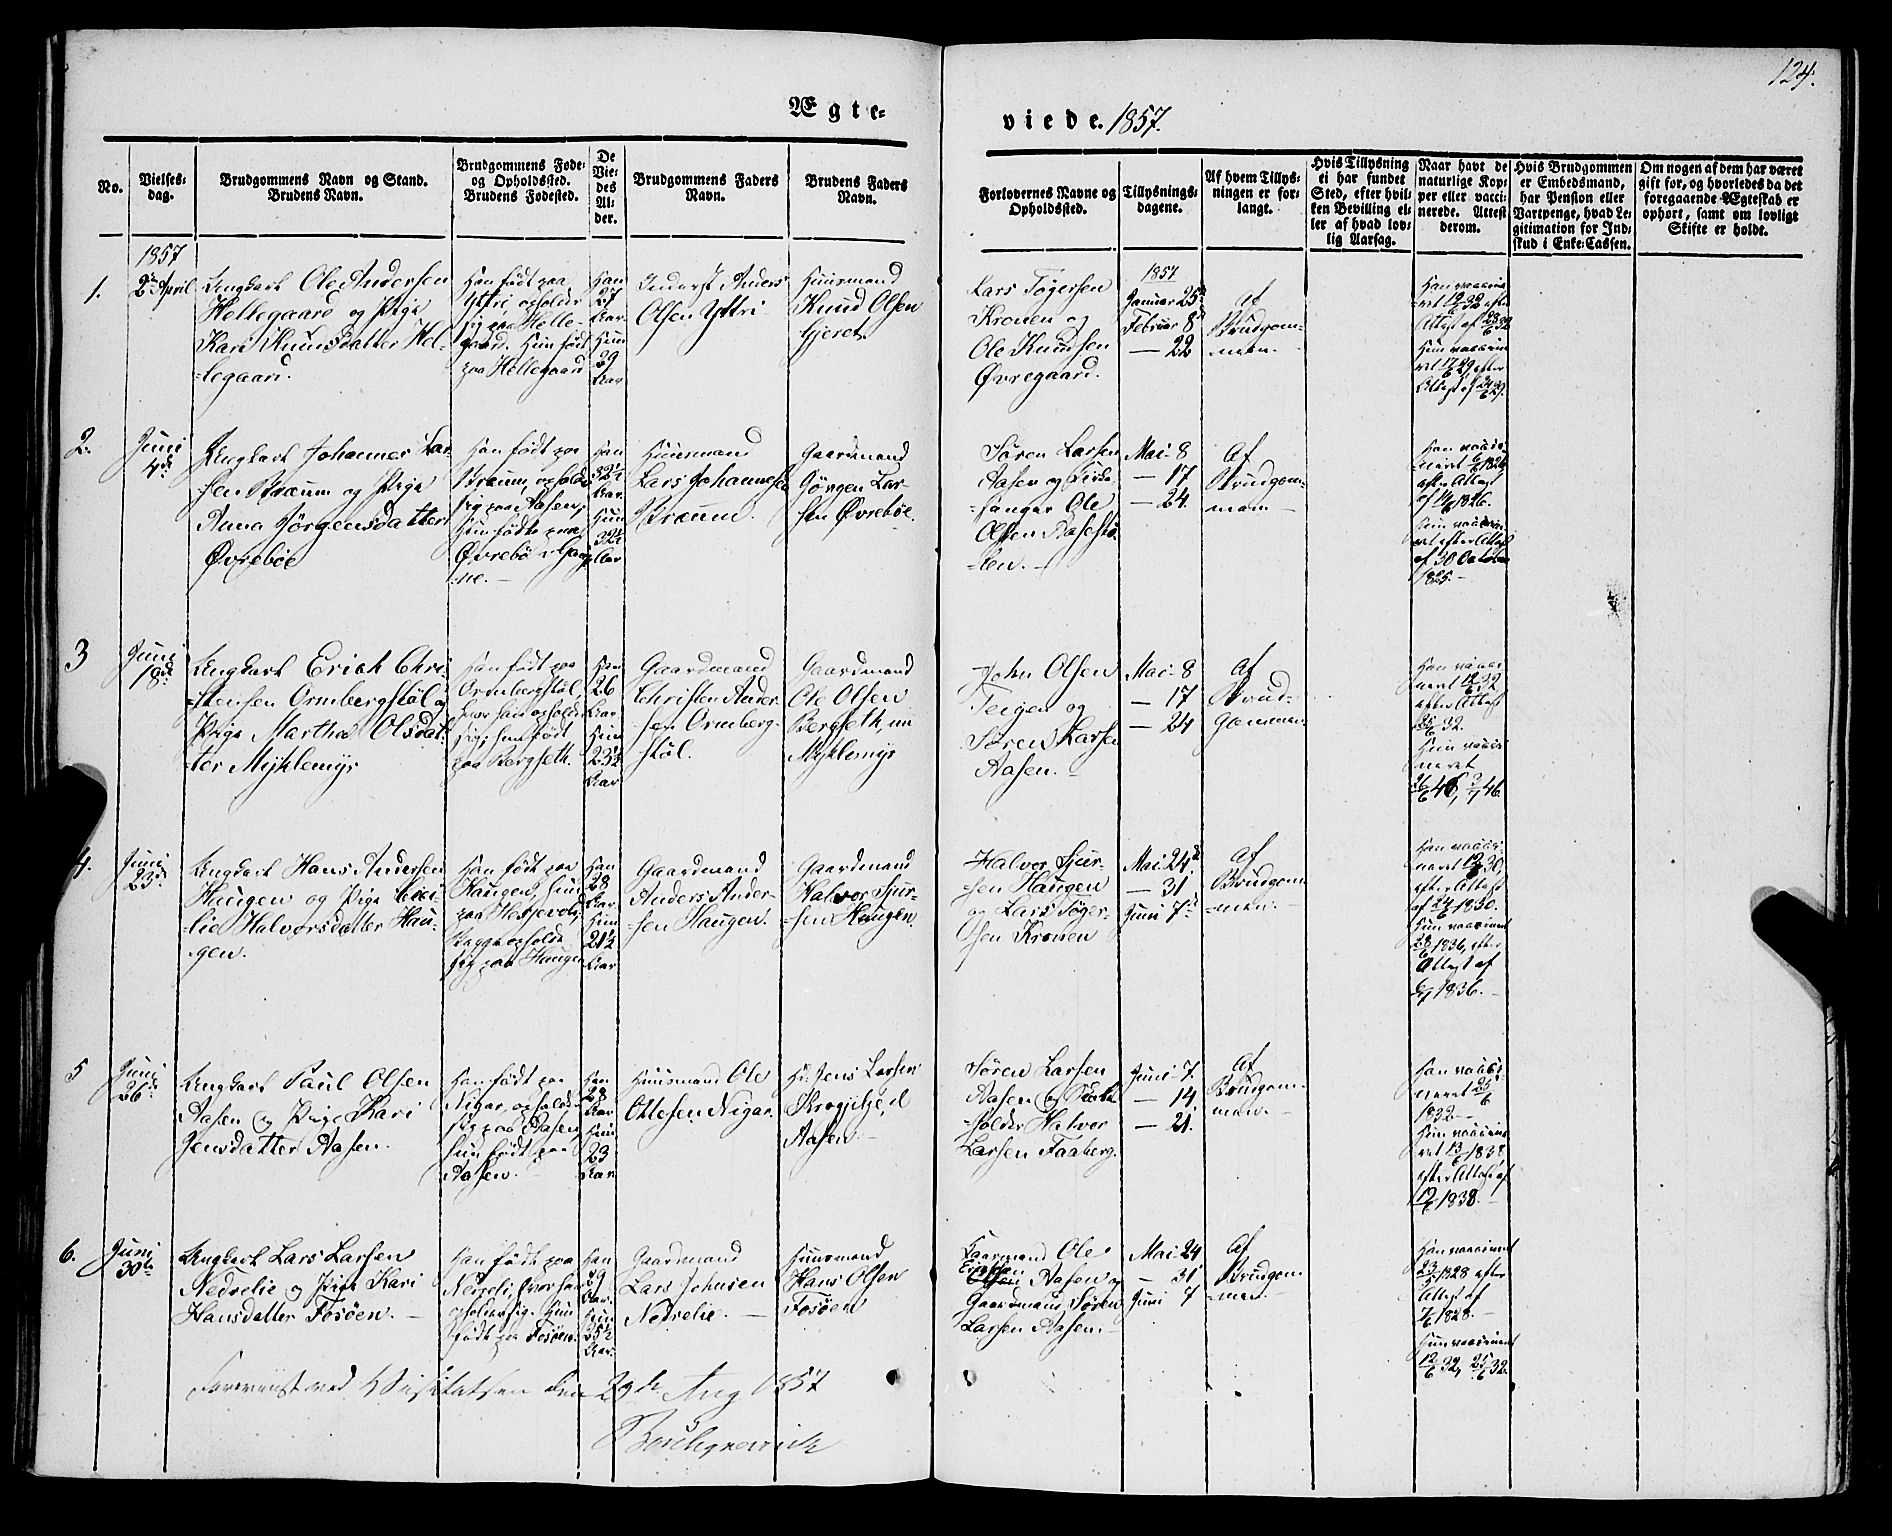 124.
Ægte-
viede. 1857.
No.
Vielses-
dag.
Brudgommens Navn og Stand.
Brudens Navn.
Brudgommens Føde-
og Opholdssted.
Brudens Fødested.
De
Vie-
des
Al-
der.
Brudgommens Faders
Navn.
Brudens Faders
Navn.
Forlovernes Navne og
Opholdssted.
Tillysnings-
dagene.
Af hvem Tillys-
ningen er for-
langt.
Hvis Tillysning
ei har fundet
Sted, efter hvil-
ken Bevilling el-
ler af hvad lov-
lig Aarsag.
Naar havt de
naturlige Kop-
per eller vacci-
nerede. Attest
derom.
Hvis Brudgommen
er Embedsmand,
har Pension eller
Vartpenge, hvad Le-
gitimation for Ind-
skud i Enke-Cassen.
Om nogen af dem har været
gift før, og hvorledes da det
foregaaende Ægteskab er
ophørt, samt om lovligt
Skifte er holdt.
1857
1.
2den April
Ungkarl Ole Andersen
Hellegaard og Pige
Kari Knudsdatter Hel-
legaard.
Han født paa
Yttri, opholder
sig paa Helle-
gaard. Hun født
paa Hellegaard
Han
27
Aar
Hun
29
Aar
Inderst Anders
Olsen Yttri
Huusmand
Knud Olsen
Gjeret
Lars Tøgersen
Kronen og
Ole Knudsen
Øvregaard.
1857
Januar 25de
Februar 8de
— 22
Af
Brudgom-
men.
Han vaccine-
ret 12/6 32 efter
Attest af
Hun vaccine-
ret efter
Attest af
2.
Juni
4de
Ungkarl Johannes Lar-
sen Bræum og Pige
Anna Jørgensdatter
Øvrebøe
Han født paa
Bræum, opholder
sig paa Aasen,
Hun født paa
Øvrebø
Han
32½
Aar.
Hun
32½
Aar
Huusmand
Lars Johannesen
Bræum.
Gaardmand
Jörgen Lar-
sen Øvrebøe.
Søren Larsen
Aasen og Kirke-
sanger Ole
Olsen Aasestø-
len.
Mai 8
— 17
— 24.
Af
Brudgom-
men
Han vacci-
neret 1826
efter Attest
af 1826.
Hun vaccine-
ret efter Attest
af 30 October
1825.
3
Juni
18de
Ungkarl Erick Chri-
stensen Ormbergstøl og
Pige Martha Olsdat-
ter Myklemyr
Han født paa
Ormbergstøl,
hvor han opholder
sig; hun født
paa Bergseth.
Han
26
Aar
Hun
23½
Aar
Gaardmand
Christen Ander-
sen Ormberg-
støl.
Gaardmand
Ole Olsen
Bergseth, nu
Myklemyr
John Olsen
Teigen og
Søren Larsen
Aasen.
Mai 8
— 17
— 24
Af
Brud-
gommen.
Han vacci-
neret 12/6 32
efter Attest
25/6 32.
Hun vacci-
neret
26/6 46, 2/7 46.
4.
Juni
23de
Ungkarl Hans Andersen
Haugen og Pige Ceci-
lie Halvorsdatter Hau-
gen.
Han født paa
Haugen, hun
paa Hesjevold,
Begge opholde
sig paa Haugen
Han
28
Aar
Hun
21½
Aar
Gaardmand
Anders Ander-
sen Haugen.
Gaardmand
Halvor Sjur-
sen Haugen.
Halvor Sjur-
sen Haugen
og Lars Tøger-
sen Kronen
Mai 24de
— 31
Juni 7de
Af
Brudgom-
men.
Han vacci-
neret 12/6 30,
efter Attest
af 24/6 1830.
Hun vaccineret
1836, efter
Attest af
1836.
5
Juni
26de
Ungkarl Paul Olsen
Aasen og Pige Kari
Jensdatter Aasen.
Han født paa
Nigar, opholder
sig paa Aasen,
hun født paa
Aasen.
Han
28
Aar
Hun
23
Aar
Huusmand Ole
Ottesen Nigar.
Jens Larsen
Aasen
Søren Larsen
Aasen og
Halvor
Larsen Faaberg.
Juni 7.
— 14
— 21.
Af
Brudgom-
men.
Han vacci-
neret 25/6
1832.
Hun vaccine-
ret 1838
efter Attest af
1838.
6.
Juni
30te
Ungkarl Lars Larsen
Nedrelie og Pige Kari
Hansdatter Fosøen.
Han født paa
Nedreli, hvor han
opholder sig. Hun
født paa Fosøen.
Han
29
Aar.
Hun
25½
Aar.
Gaardmand
Lars Johnsen
Nedrelie.
Huusmand
Hans Olsen
Fosøen
Gaardmand Ole
Aasen og
Gaardmand Søren
Larsen Aasen.
Mai 24
— 31
Juni 7
Af
Brudgom-
men.
Han vaccineret
1828 efter
Attest af
1828.
Hun vaccineret
12/6 32, 25/6 32.
Forevist ved Visitatsen den 29de Aug 1857